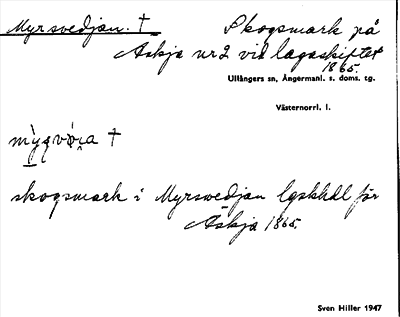 Myrsvedjan. † Skogsmark på
Askja nr 2 vid lagaskiftet
1865.
Ullångers sn, Ångermanl. s. doms. tg.
Västernorrl. l.
skogsmark i Myrsvedjan lgskhdl för
Askja 1865.
Sven Hiller 1947